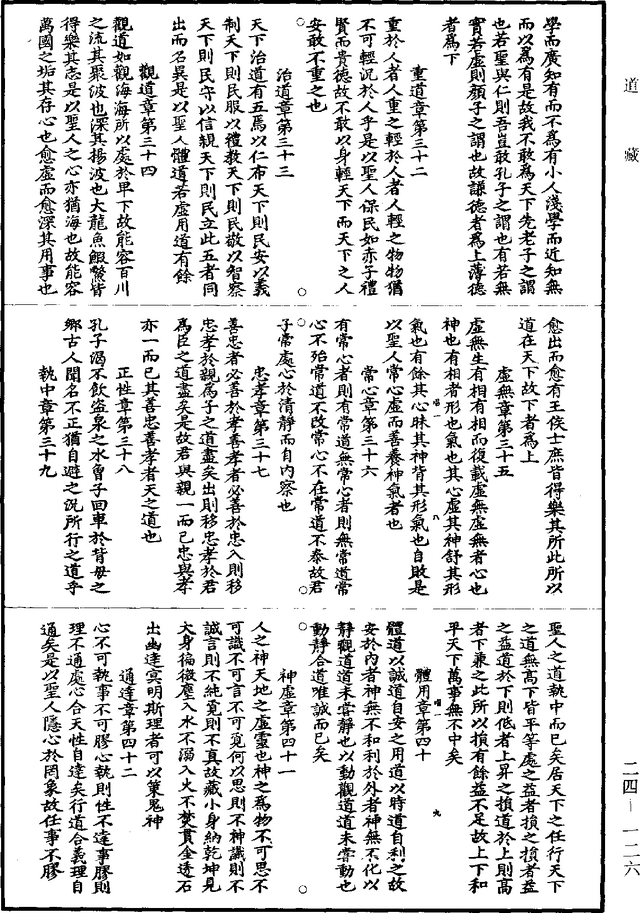 道藏
學而廣知有而不為有小人淺學而近知無
而以為有是故我不敢為天下先老子之謂
也若聖與仁則吾豈敢孔子之謂也有若無
實若虛則顏子之謂也故謙德者為上薄德
者為下
重道章第三十二
重於人者人重之輕於人者人輕之物物猶
不可輕況於人乎是以聖人保民如赤子禮
賢而貴德故不敢以身輕天下而天下之人
安敢不重之也
治道章第三十三
天下治道有五焉以仁布天下則民安以義
制天下則民服以禮教天下則民敬以智察
天下則民守以信親天下則民立此五者同
出而名異是以聖人體道若虛用道有餘
觀道章第三十四
觀道如觀海海所以處於卑下故能容百川
之流其聚波也深其揚波也大龍魚鰕鱉皆
得樂其志是以聖人之心亦猶海也故能容
萬國之垢其存心也愈虛而愈深其用事也
愈出而愈有王侯士庶皆得樂其所此所以
道在天下故下者為上
虛無章第三十五
虛無生有相有相而復載虛無虛無者心也
神也有相者形也氣也其心虛其神舒其形
氣也有餘其心昧其神背其形氣也自敗是
以聖人常心虛而善養神氣者也
常心章第三十六
有常心者則有常道無常心者則無常道常
心不殆常道不改常心不在常道不泰故君
子常處心於清靜而自內察也
忠孝章第三十七
善忠者必善於孝善孝者必善於忠入則移
忠孝於親為子之道盡矣出則移忠孝於君
為臣之道盡矣是故君與親一而已忠與孝
亦一而已其善忠善孝者天之道也
正性章第三十八
孔子渴不飲盜泉之水曾子回車於背母之
鄉古人聞名不正猶自避之況所行之道乎
執中章第三十九
聖人之道執中而已矣居天下之任行天下
之道無高下皆平等處之益者損之損者益
之益道於下則低者上昇之損道於上則高
者下兼之此所以損有餘益不足故上下和
平天下萬事無不中矣
體用章第四十
體道以誠道自安之用道以時道自利之故
安於內者神無不和利於外者神無不化以
靜觀道道未嘗靜也以動觀道道未嘗動也
動靜合道唯誠而已矣
神虛章第四十一
人之神天地之虛靈也神之為物不可思不
可識不可言不可覓何以思則不神識則不
誠言則不純覓則不真故藏小身納乾坤見
大身徧微塵入水不溺入火不焚貫金透石
出幽達冥明斯理者可以策鬼神
通達章第四十二
心不可執事不可膠心執則性不達事膠則
理不通處心合天性自達矣行道合義理自
通矣是以聖人隱心於罔象故任事不膠
二四—一二六